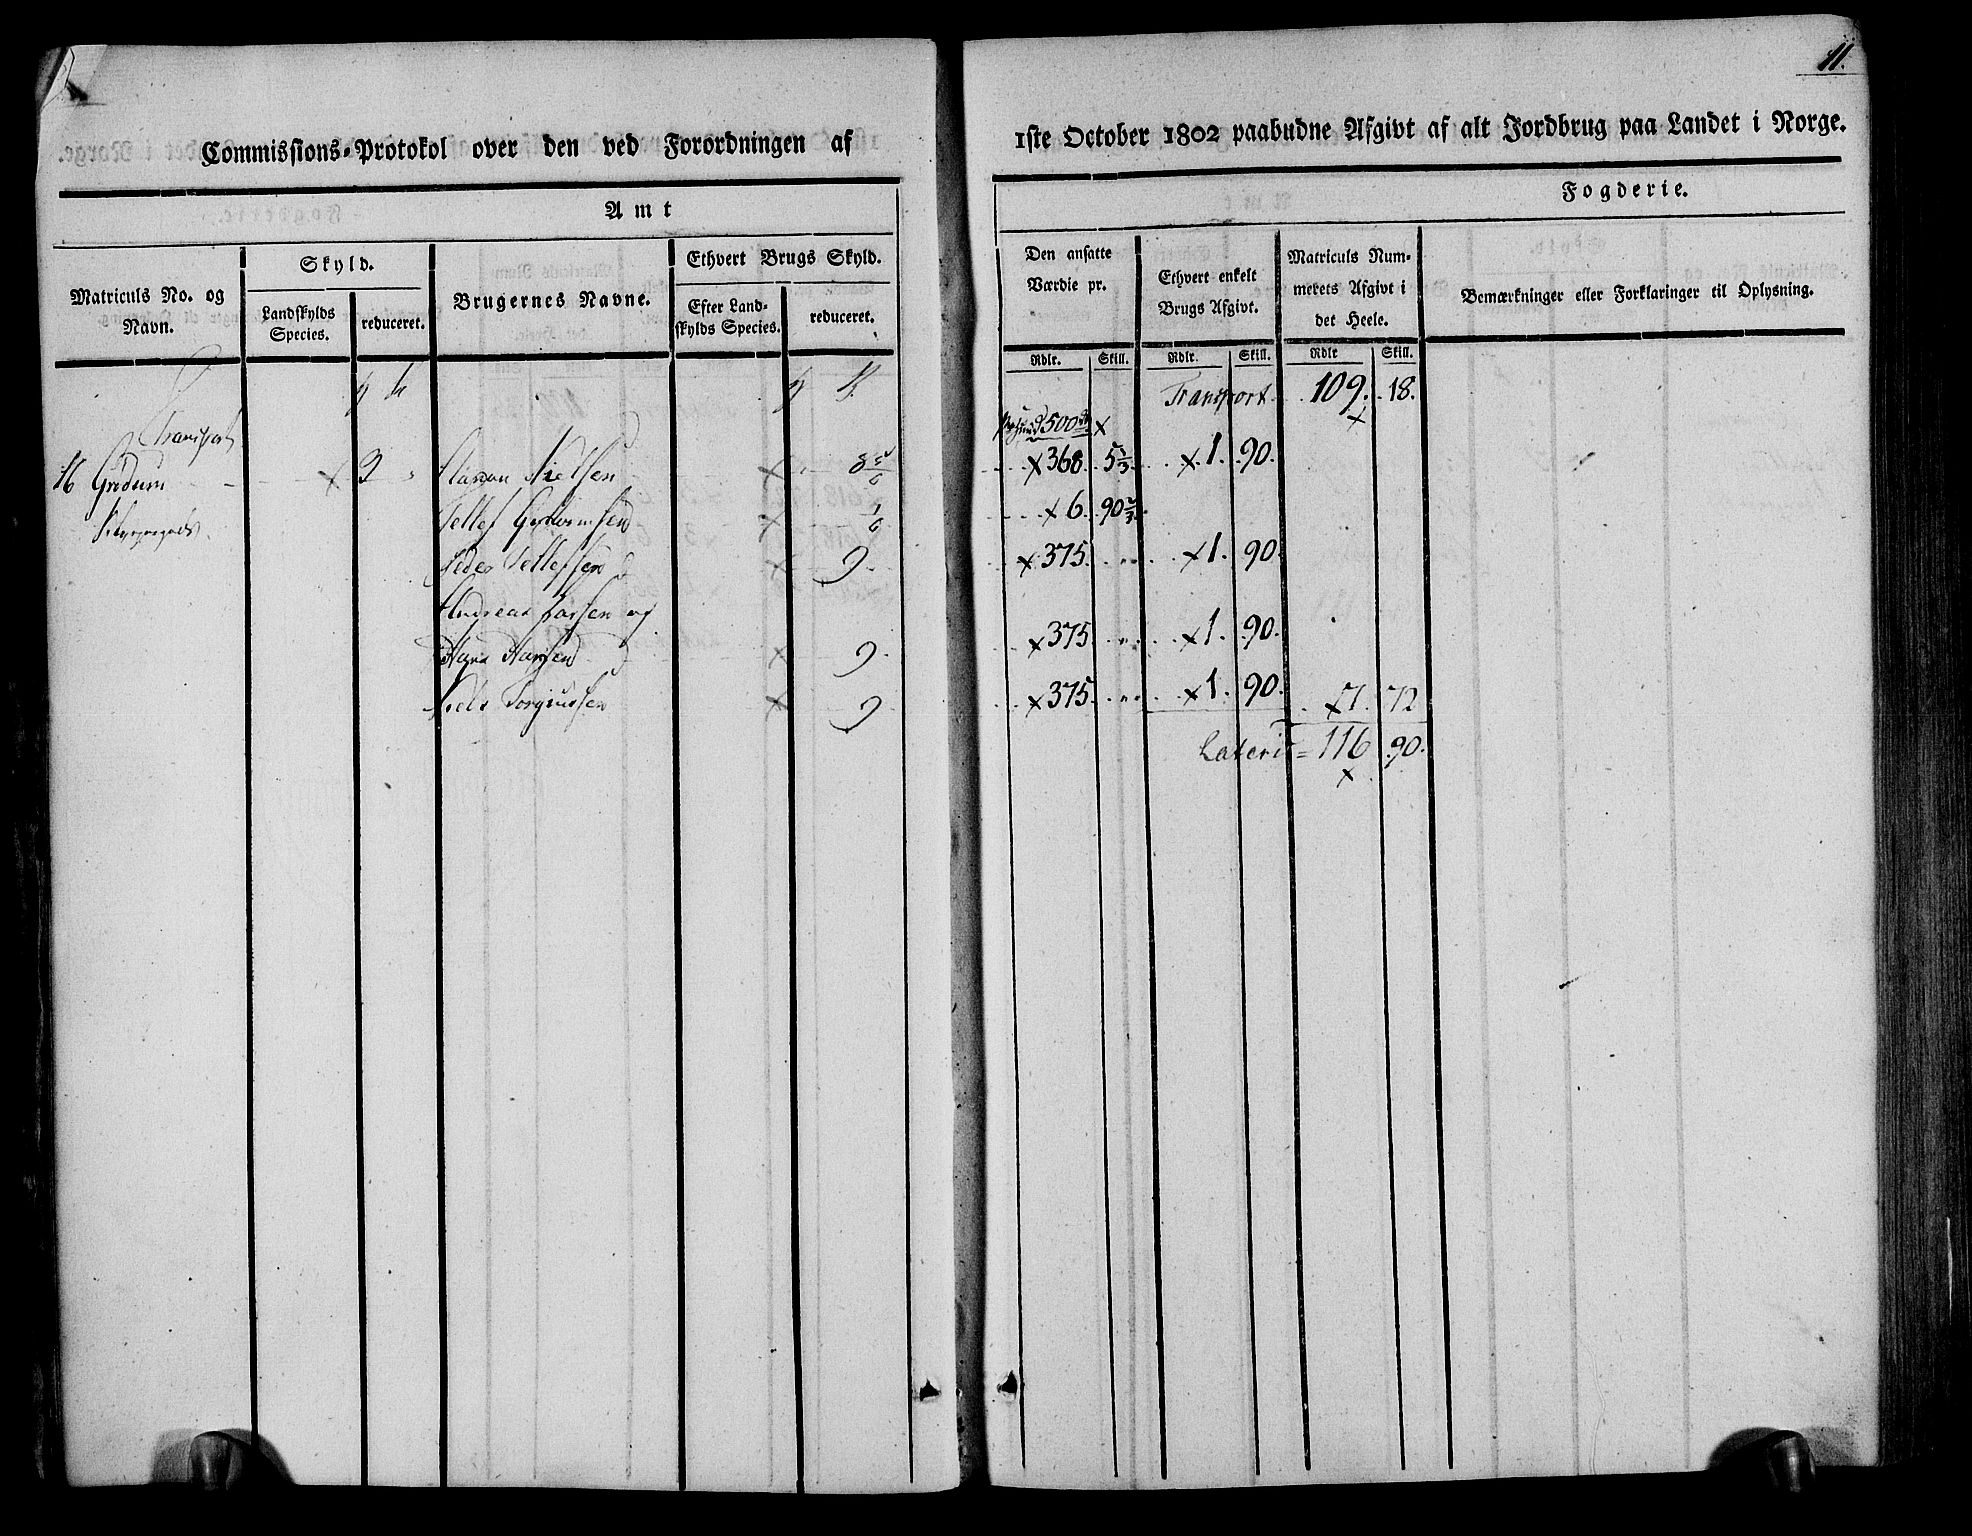 11.
Commissions-Protokol over den ved Forordningen af
1ste October 1802 paabudne Afgivt af alt Jordbrug paa Landet i Norge.
Amt
Fogderie.
Matriculs No. og Navn.
Skyld.
Landskylds Species.
reduceret.
Brugernes Navne.
Ethvert Brugs Skyld.
Efter Landskylds Species.
reduceret.
Den ansatte Værdie pr.
Ethvert enkelt Brugs Afgivt.
Matriculs Nummerets Afgivt i det Heele.
Bemærkninger eller Forklaringer til Oplysning.
Rdlr. Skill. Rdlr. Skill. Rdlr Skill.
Transport
Transport 109. 18.
500
16 3 Nielsen 8 5/6 368. 5 1/3 1. 90.
Tellef 1/6 6. 90 2/3
Peder Tellefsen 9. 375. 1. 90.
Andreas Larsen og
Hans Hansen 9. 375. 1. 90.
Niels Torgiussen 9 375. 1. 90. 7. 72
Lateris = 116 90.